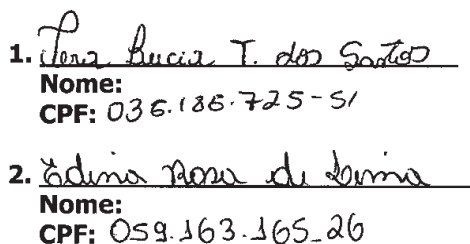 1. Vera Lucia T. dos Santos
Nome:
CPF: 036.186.725-51
2. Edina Rosa de Lima
Nome:
CPF: 059.163.165-26